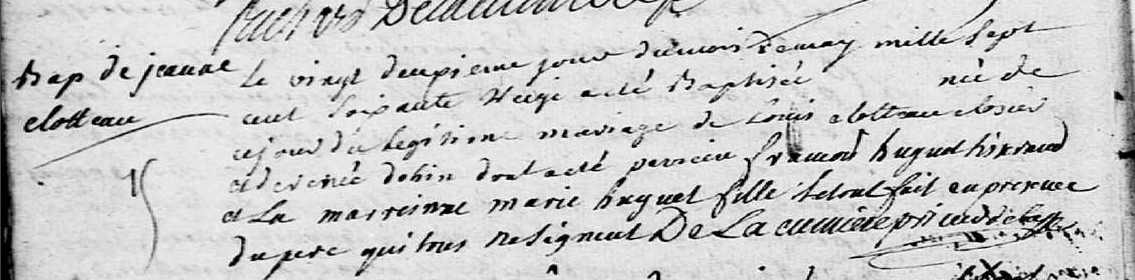 Bap de jeanne
clotteau
Le vingt deuxieme jour du mois de may mille sept
cent soixante treize a eté Baptisée née de
ce jour du legitime mariage de Louis clotteau closier
et de renée dont a eté parrein francois huguet
et La marreinne marie huguet fille le tout fait en presence
du pere qui tous ne signent De La